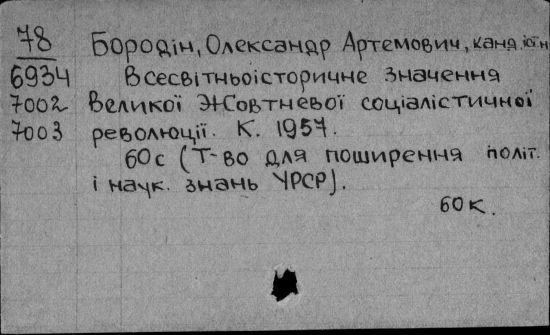 78 Бородін, Олександр Артемович, канд. іст. н
6934 Всесвітньоісторичне значення
7002 Великої Жовтневої соціалістичної
7003 революції. К. 1957.
60с (Т-во для поширення політ.
і наук. знань УРСР).
60к.